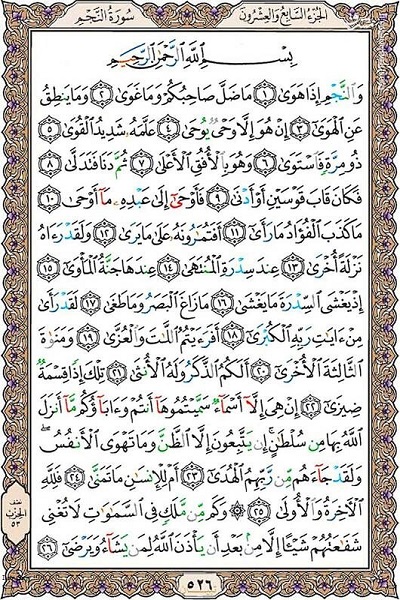 الجزء السابع والعشرون سورة النجم
بِسْمِ اللَّهِ الرَّحْمَٰنِ الرَّحِيمِ
وَالنَّجْمِ إِذَا هَوَىٰ ١ مَا ضَلَّ صَاحِبُكُمْ وَمَا غَوَىٰ ٢ وَمَا يَنطِقُ
عَنِ الْهَوَىٰ ٣ إِنْ هُوَ إِلَّا وَحْيٌ يُوحَىٰ ٤ عَلَّمَهُ شَدِيدُ الْقُوَىٰ ٥
ذُو مِرَّةٍ فَاسْتَوَىٰ ٦ وَهُوَ بِالْأُفُقِ الْأَعْلَىٰ ٧ ثُمَّ دَنَا فَتَدَلَّىٰ ٨
فَكَانَ قَابَ قَوْسَيْنِ أَوْ أَدْنَىٰ ٩ فَأَوْحَىٰ إِلَىٰ عَبْدِهِ مَا أَوْحَىٰ ١٠
مَا كَذَبَ الْفُؤَادُ مَا رَأَىٰ ١١ أَفَتُمَارُونَهُ عَلَىٰ مَا يَرَىٰ ١٢ وَلَقَدْ رَءَاهُ
نَزْلَةً أُخْرَىٰ ١٣ عِندَ سِدْرَةِ الْمُنتَهَىٰ ١٤ عِندَهَا جَنَّةُ الْمَأْوَىٰ ١٥
إِذْ يَغْشَى السِّدْرَةَ مَا يَغْشَىٰ ١٦ مَا زَاغَ الْبَصَرُ وَمَا طَغَىٰ ١٧ لَقَدْ رَأَىٰ
مِنْ ءَايَاتِ رَبِّهِ الْكُبْرَىٰ ١٨ أَفَرَءَيْتُمُ اللَّاتَ وَالْعُزَّىٰ ١٩ وَمَنَوٰةَ
الثَّالِثَةَ الْأُخْرَىٰ ٢٠ أَلَكُمُ الذَّكَرُ وَلَهُ الْأُنثَىٰ ٢١ تِلْكَ إِذًا قِسْمَةٌ
ضِيزَىٰ ٢٢ إِنْ هِيَ إِلَّا أَسْمَاءٌ سَمَّيْتُمُوهَا أَنتُمْ وَءَابَاؤُكُم مَّا أَنزَلَ
اللَّهُ بِهَا مِن سُلْطَانٍ إِن يَتَّبِعُونَ إِلَّا الظَّنَّ وَمَا تَهْوَى الْأَنفُسُ ۖ
وَلَقَدْ جَاءَهُم مِّن رَّبِّهِمُ الْهُدَىٰ ٢٣ أَمْ لِلْإِنسَانِ مَا تَمَنَّىٰ ٢٤ فَلِلَّهِ
الْآخِرَةُ وَالْأُولَىٰ ٢٥ ۞ وَكَم مِّن مَّلَكٍ فِي السَّمَاوَاتِ لَا تُغْنِي
شَفَاعَتُهُمْ شَيْئًا إِلَّا مِن بَعْدِ أَن يَأْذَنَ اللَّهُ لِمَن يَشَاءُ وَيَرْضَىٰ ٢٦
نصف
الحزب
٥٣
٥٢٦